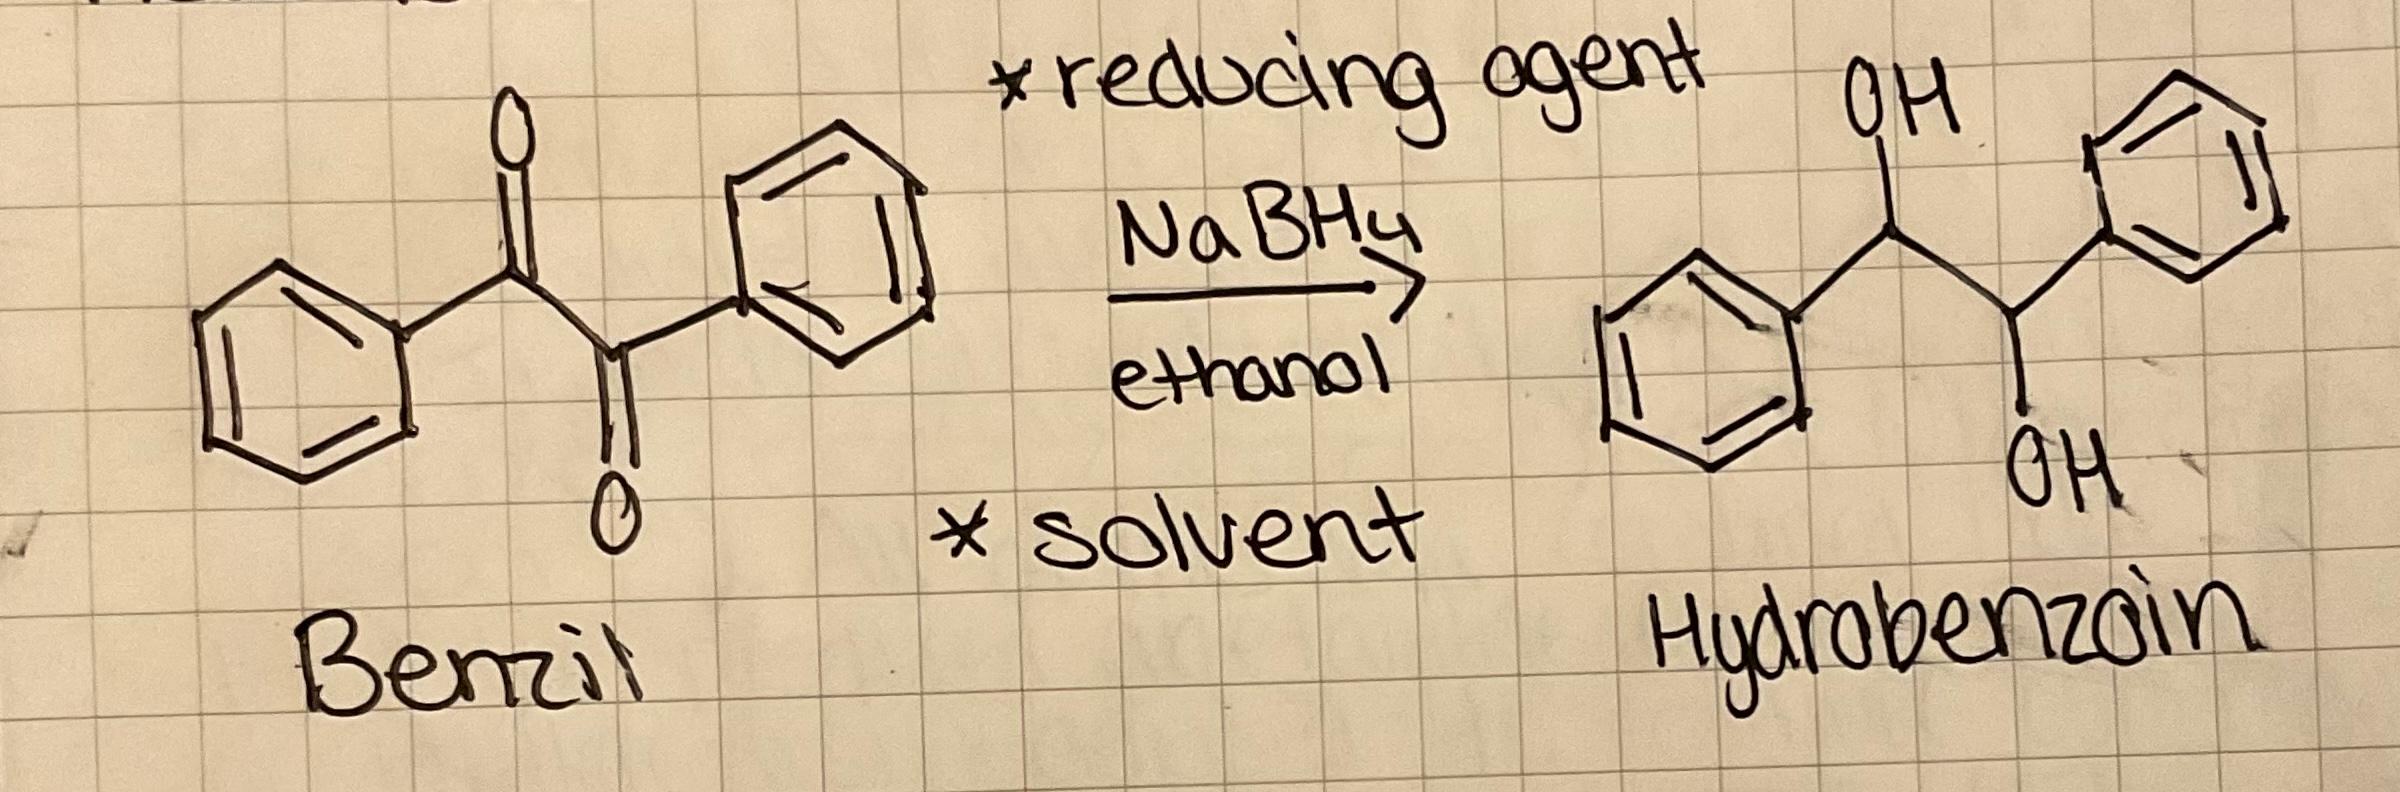 *reducing agent
O
OH
NaBH4
ethanol
O
OH
* solvent
Benzil
Hydrobenzoin